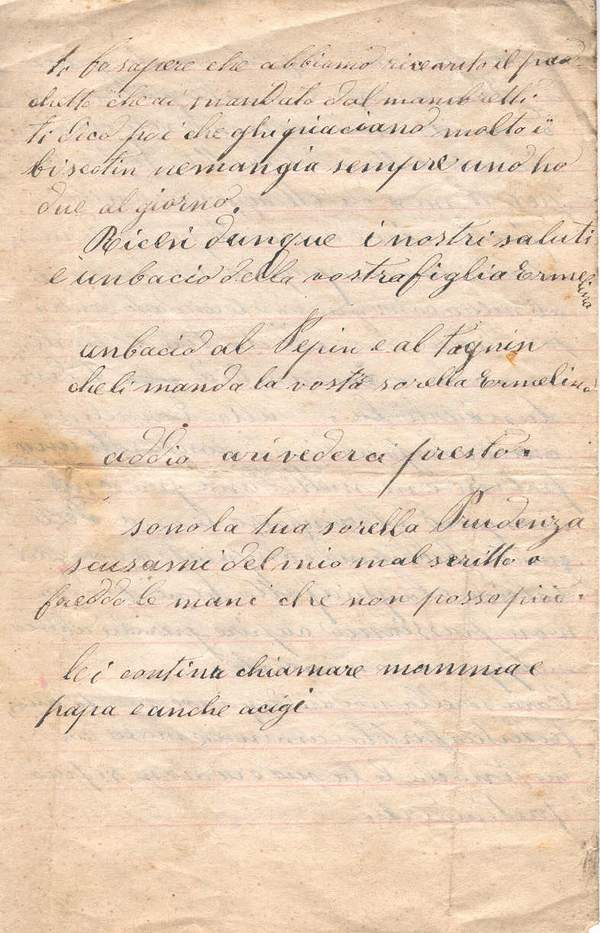 ti fo sapere che abbiamo ricevuto il pac
chetto che ai mandato dal mambretti
ti dico poi che ghi piaciano molto i
biscotin ne mangia sempre uno ho
due al giorno.
Ricevi dunque i nostri saluti
e un bacio della vostra figlia Ermelina
un bacio al Pepin e al Tognin
che li manda la vosta sorella Ermelina
addio arivederci presto.
sono la tua sorella Prudenza
scusami del mio mal scritto o
freddo le mani che non posso più.
lei continu chiamare mamma e
papa e anche acigi